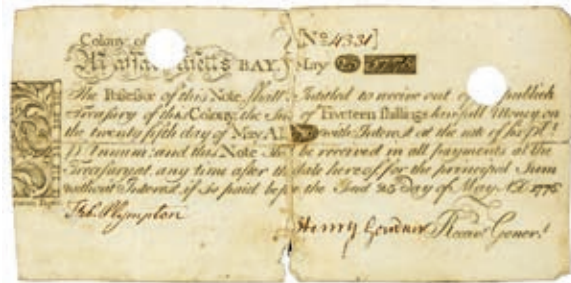 Colony of [No 4331]
BAY May 25 1775
The Possessor of this Note shall be Intitled to receive out of publick
Treasury of this Colony, the Sum of Fiveteen shillings Lawfull Money on
the twenty fifth day of May AD with Interest at the rate of six pCt
Annum: and this Note be received in all payments at the
Treasury at any time after the date hereof, for the principal Sum
without Interest, if so paid before the said 25 day of May AD 1776
Plympton Henry Gardner Receivr General